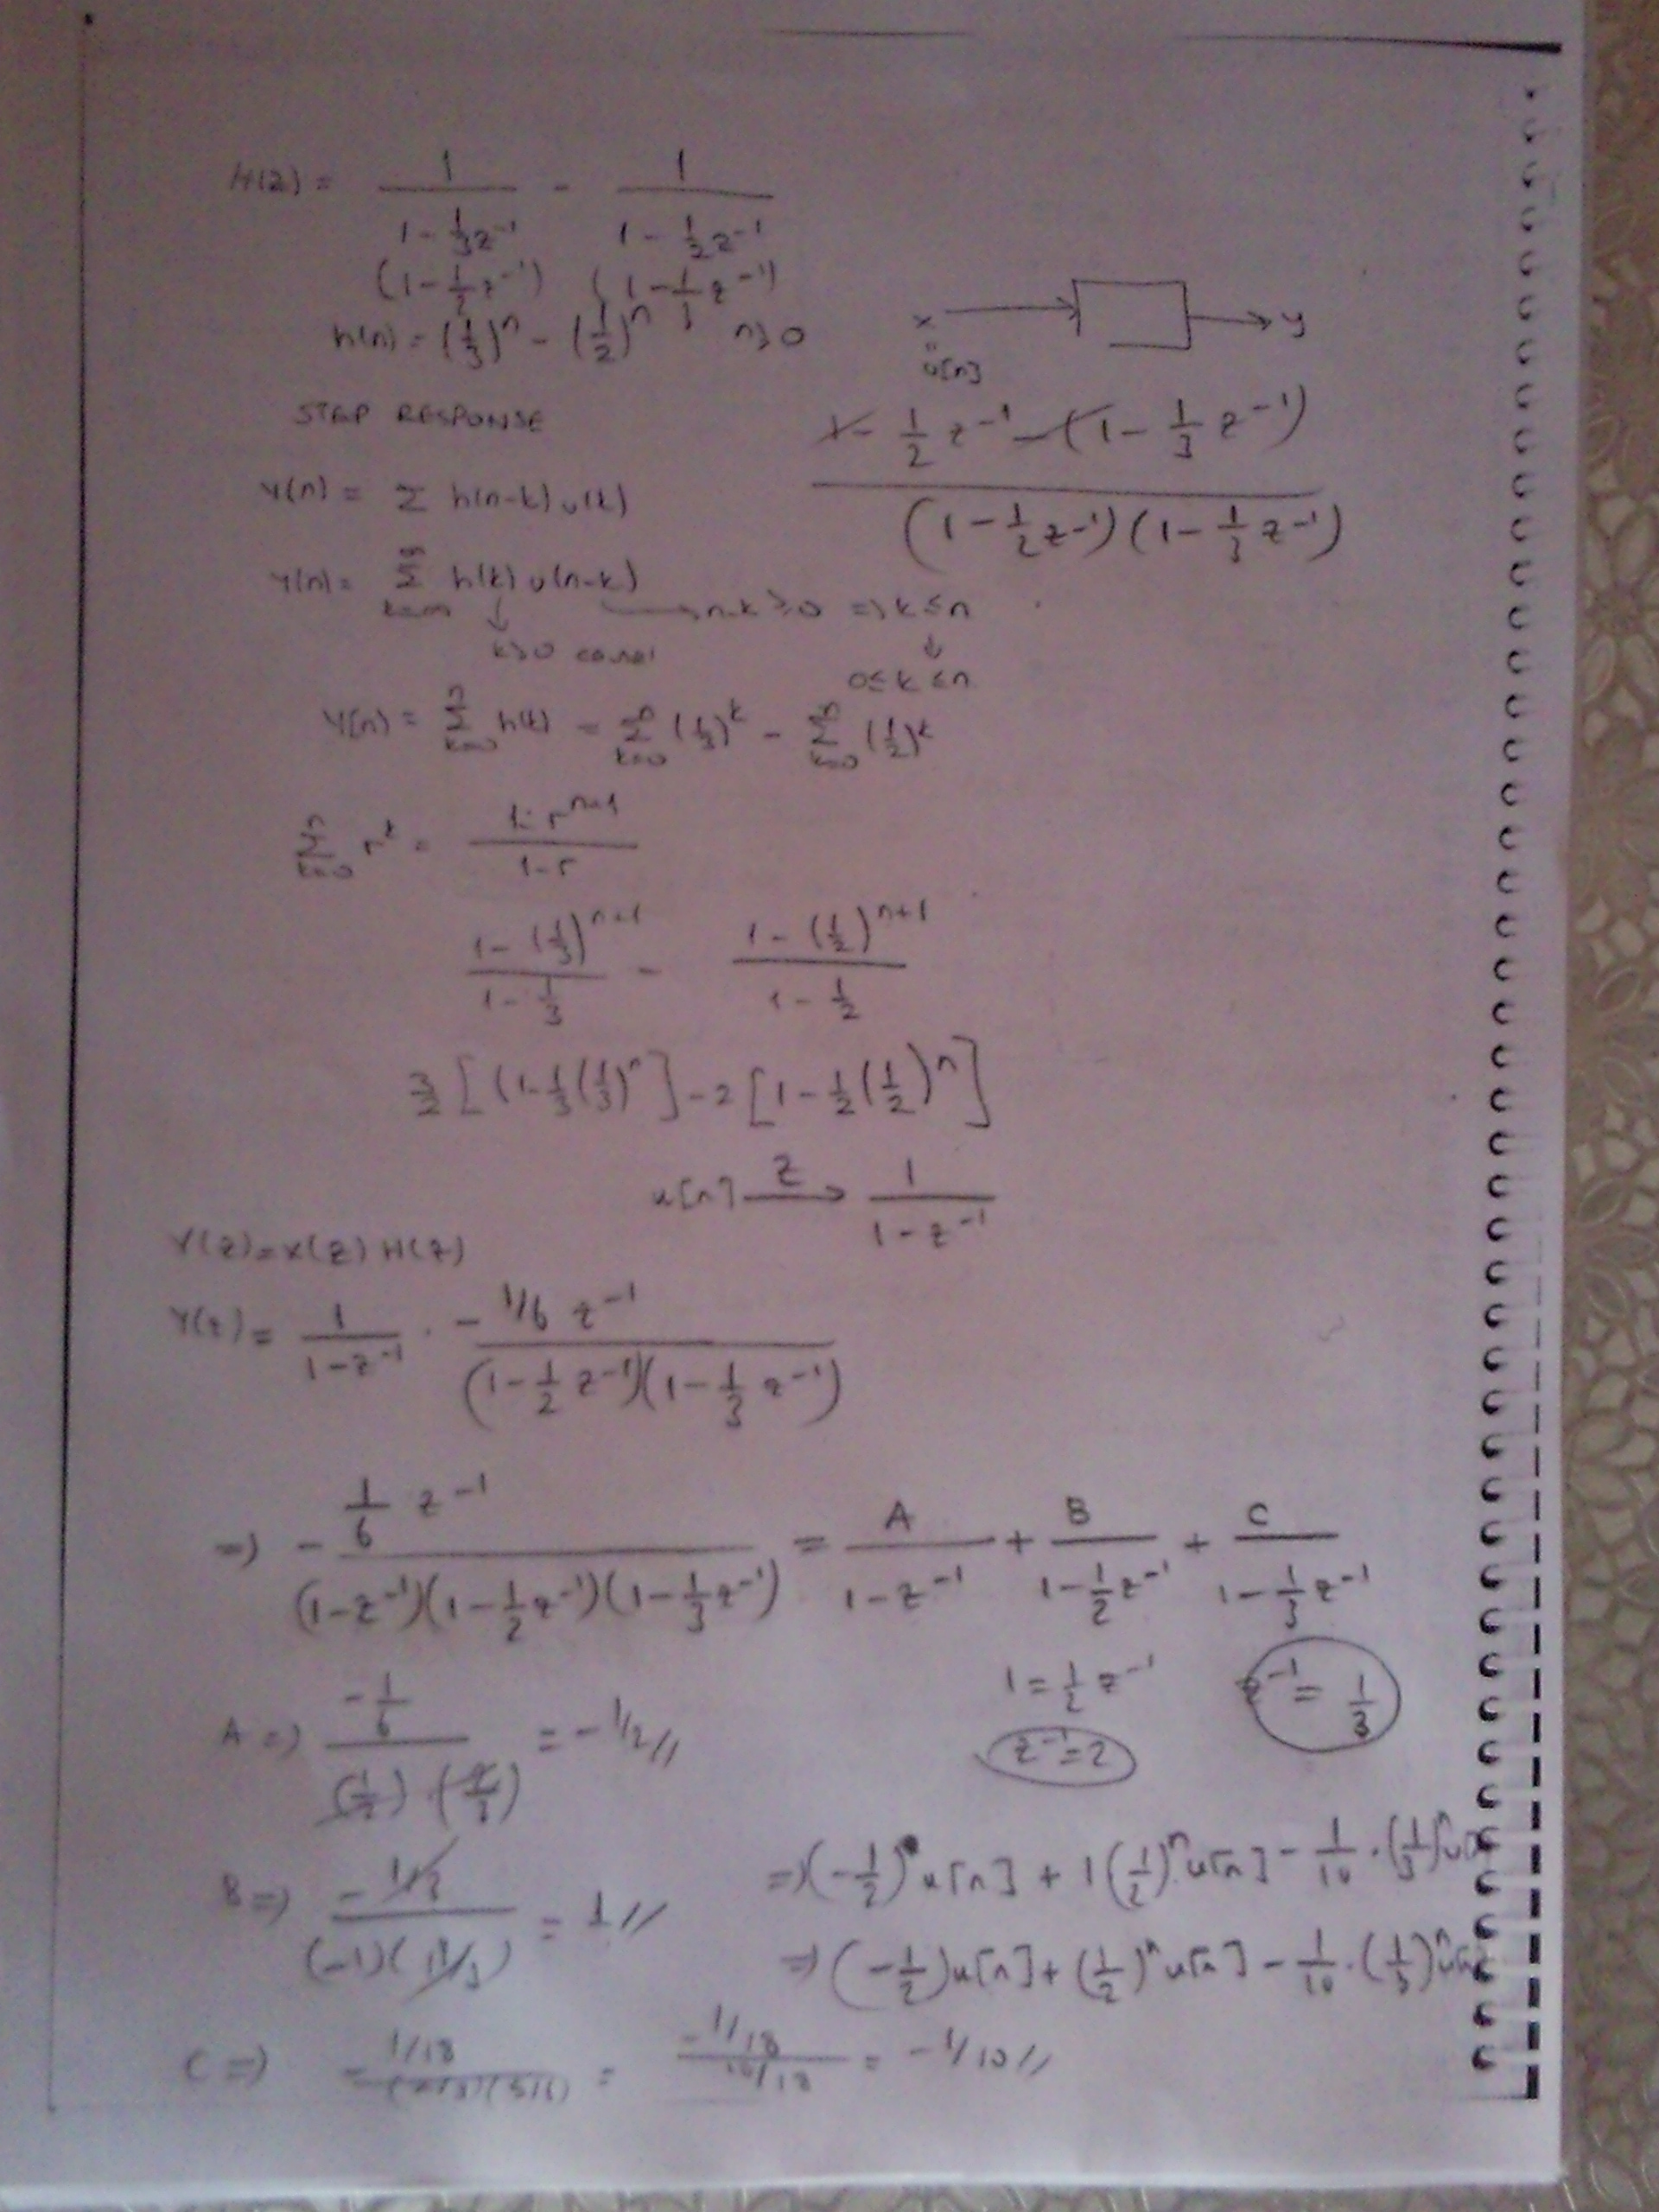 H(z) = 1/(1 - 1/3 z^-1) - 1/(1 - 1/2 z^-1)
(1 - 1/2 z^-1) (1 - 1/3 z^-1)
h(n) = (1/3)^n - (1/2)^n n≥0
x → y
u[n]
STEP RESPONSE
(1 - 1/2 z^-1 - (1 - 1/3 z^-1))/((1 - 1/2 z^-1)(1 - 1/3 z^-1))
y(n) = Σ h(n-k) u(k)
y(n) = Σ_{k=-∞}^{∞} h(k) u(n-k)
→ n-k ≥ 0 => k ≤ n
k≥0 causal
0 ≤ k ≤ n
y(n) = Σ_{k=0}^{n} h(k) = Σ_{k=0}^{n} (1/3)^k - Σ_{k=0}^{n} (1/2)^k
Σ_{k=0}^{n} r^k = (1 - r^{n+1})/(1-r)
(1 - (1/3)^{n+1})/(1 - 1/3) - (1 - (1/2)^{n+1})/(1 - 1/2)
3/2 [(1 - 1/3 (1/3)^n] - 2 [1 - 1/2 (1/2)^n]
u[n] —Z→ 1/(1 - z^-1)
Y(z) = X(z) H(z)
Y(z) = 1/(1 - z^-1) · (- 1/6 z^-1)/((1 - 1/2 z^-1)(1 - 1/3 z^-1))
=> - (1/6 z^-1)/((1 - z^-1)(1 - 1/2 z^-1)(1 - 1/3 z^-1)) = A/(1 - z^-1) + B/(1 - 1/2 z^-1) + C/(1 - 1/3 z^-1)
1 = 1/2 z^-1
z^-1 = 2
z^-1 = 1/3
A => (-1/6)/((1/2)(2/3)) = - 1/2 //
B => (- 1/3)/((-1)(1/3)) = 1 //
=> (-1/2) u[n] + 1 (1/2)^n u[n] - 1/10 . (1/3)^n
=> (-1/2) u[n] + (1/2)^n u[n] - 1/10 . (1/3)^n
C => - (1/18)/((2/3)(5/6)) = (-1/18)/(10/18) = - 1/10 //